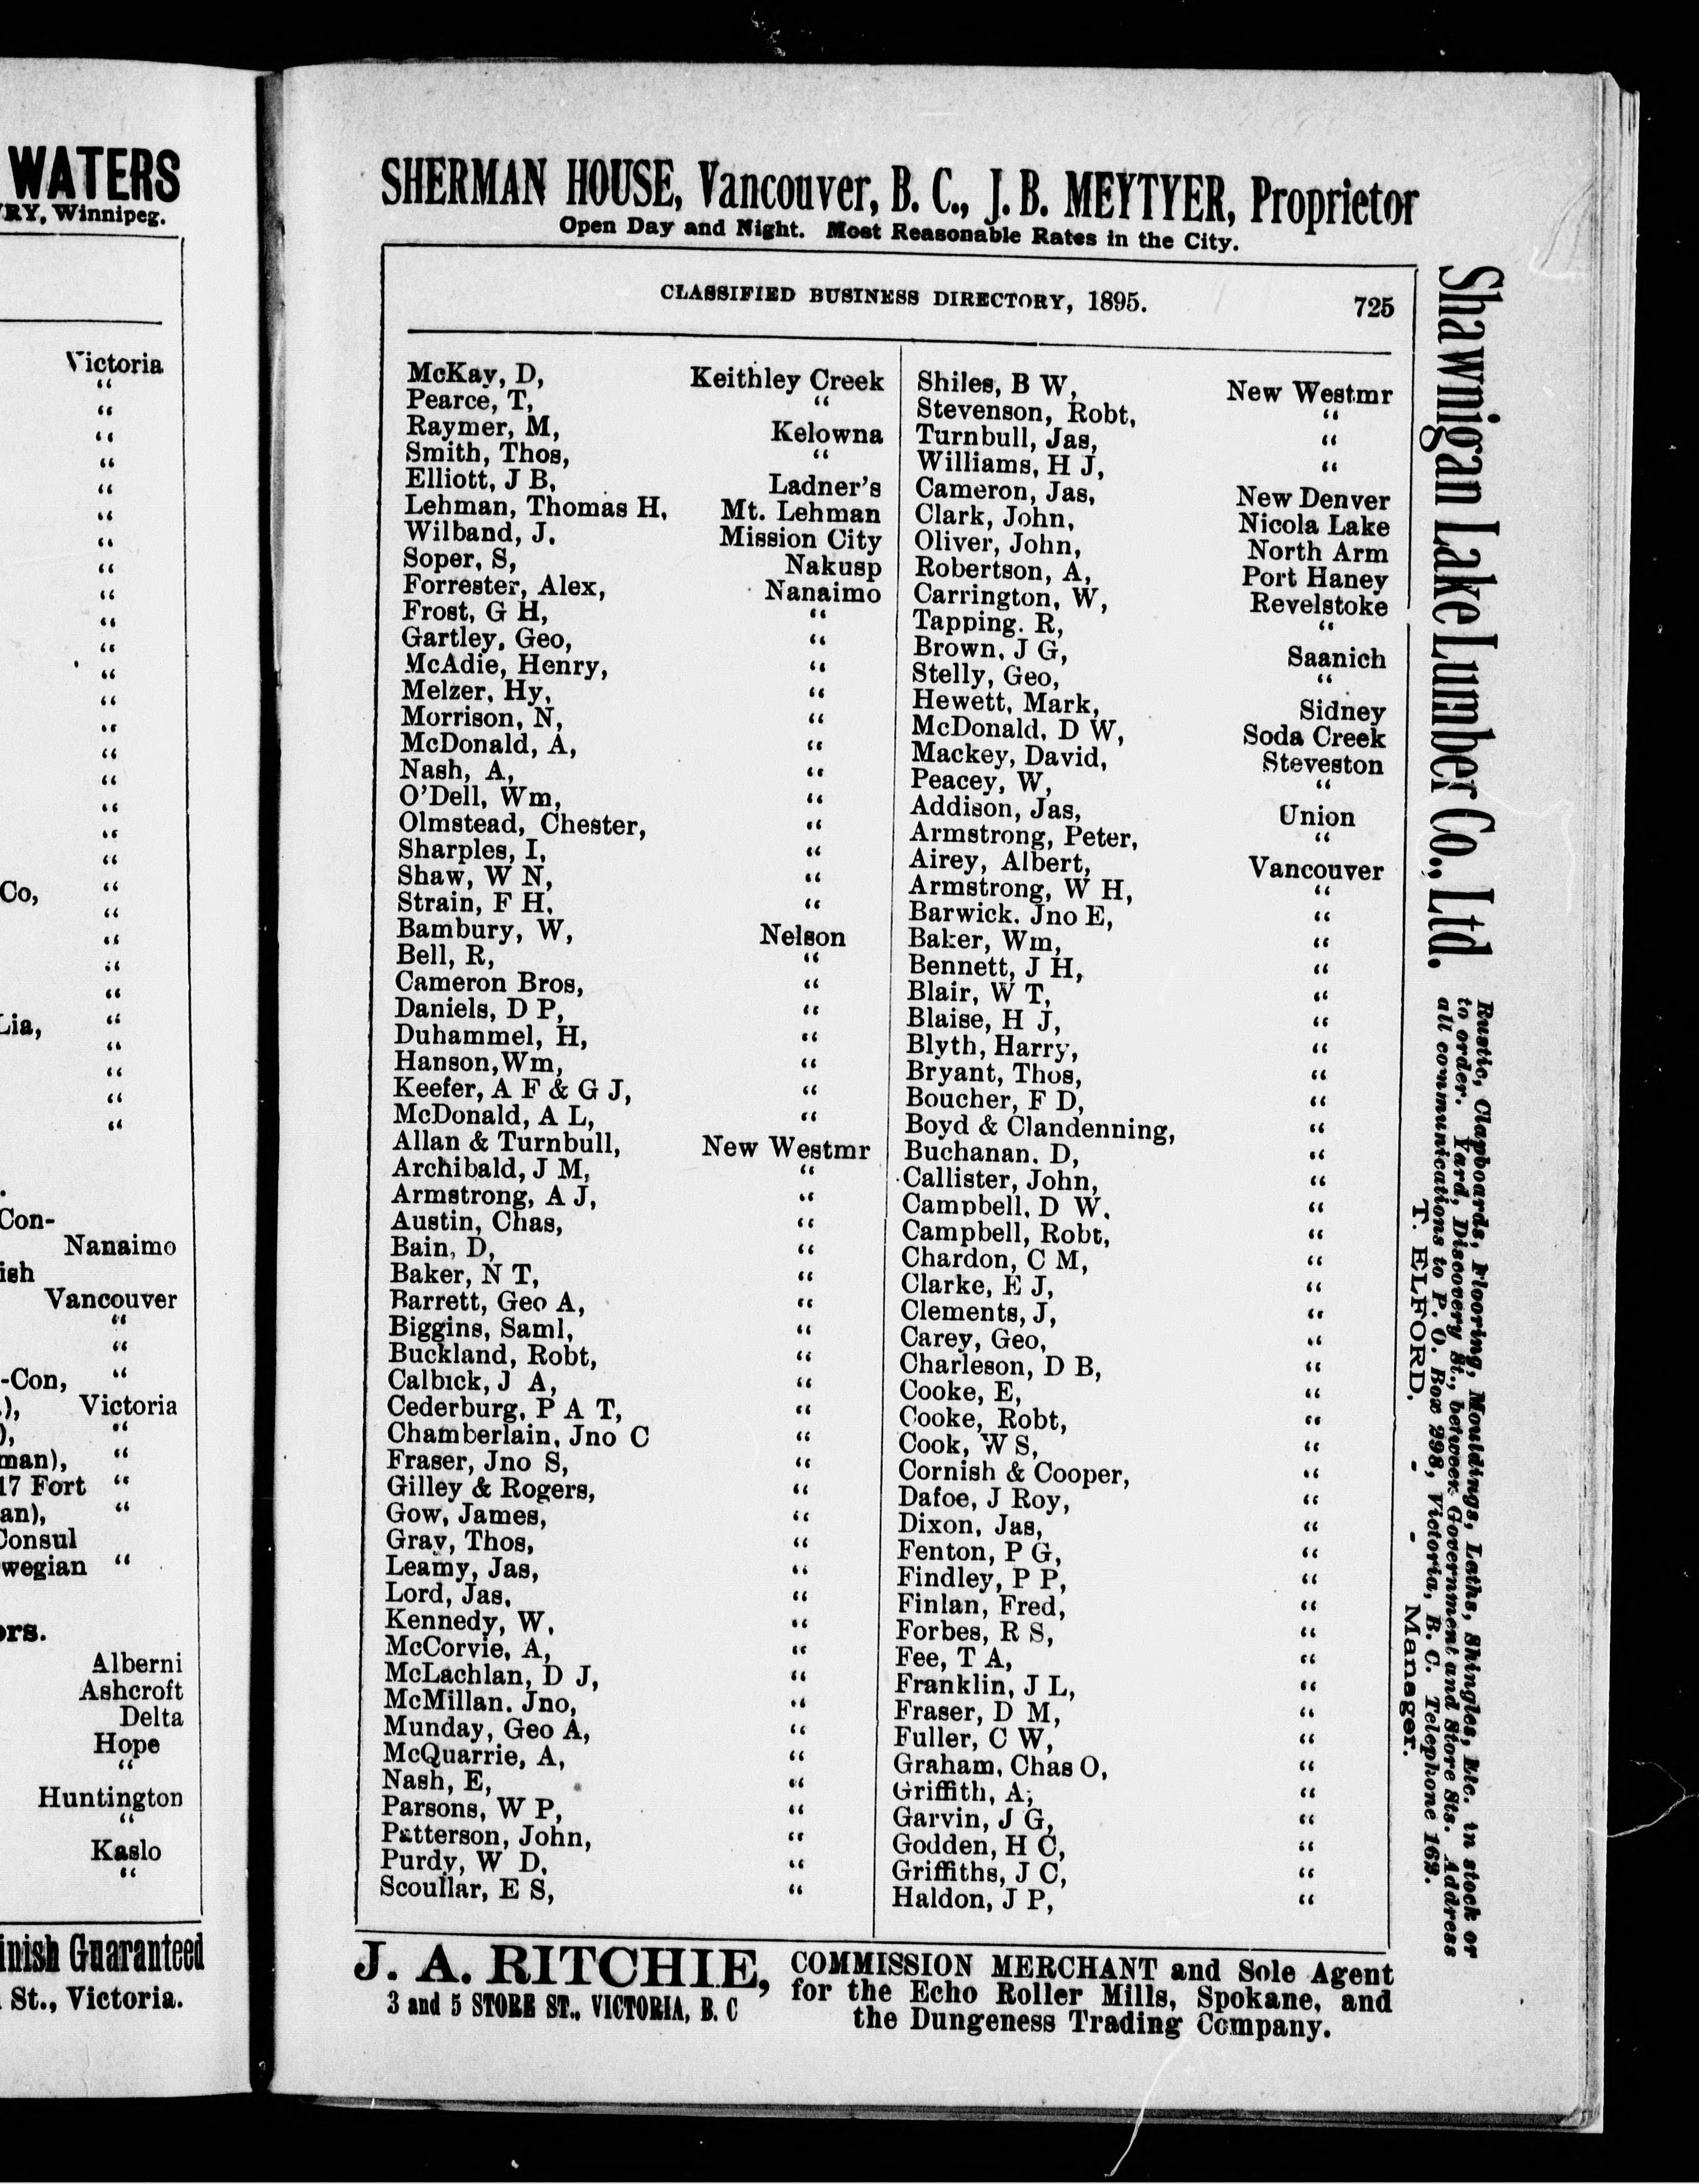 WATERS
RY, Winnipeg.
Victoria
“
“
“
“
“
“
“
“
“
“
“
“
“
“
“
“
“
“
“
Co, “
“
“
“
“
Lia, “
“
“
“
“
Con-
Nanaimo
ish
Vancouver
“
“
-Con, “
), Victoria
), “
man), “
17 Fort “
an), “
Consul
wegian “
ors.
Alberni
Ashcroft
Delta
Hope
“
Huntington
“
Kaslo
“
inish Guaranteed
St., Victoria.
SHERMAN HOUSE, Vancouver, B. C., J. B. MEYTYER, Proprietor
Open Day and Night. Most Reasonable Rates in the City.
CLASSIFIED BUSINESS DIRECTORY, 1895. 725
McKay, D, Keithley Creek
Pearce, T, “
Raymer, M, Kelowna
Smith, Thos, “
Elliott, J B, Ladner's
Lehman, Thomas H, Mt. Lehman
Wilband, J. Mission City
Soper, S, Nakusp
Forrester, Alex, Nanaimo
Frost, G H, “
Gartley, Geo, “
McAdie, Henry, “
Melzer, Hy, “
Morrison, N, “
McDonald, A, “
Nash, A, “
O'Dell, Wm, “
Olmstead, Chester, “
Sharples, I, “
Shaw, W N, “
Strain, F H, “
Bambury, W, Nelson
Bell, R, “
Cameron Bros, “
Daniels, D P, “
Duhammel, H, “
Hanson,Wm, “
Keefer, A F & G J, “
McDonald, A L, “
Allan & Turnbull, New Westmr
Archibald, J M, “
Armstrong, A J, “
Austin, Chas, “
Bain, D, “
Baker, N T, “
Barrett, Geo A, “
Biggins, Saml, “
Buckland, Robt, “
Calbick, J A, “
Cederburg, P A T, “
Chamberlain, Jno C “
Fraser, Jno S, “
Gilley & Rogers, “
Gow, James, “
Gray, Thos, “
Leamy, Jas, “
Lord, Jas. “
Kennedy, W. “
McCorvie, A, “
McLachlan, D J, “
McMillan. Jno, “
Munday, Geo A, “
McQuarrie, A, “
Nash, E, “
Parsons, W P, “
Patterson, John, “
Purdy, W D. “
Scoullar, E S, “
Shiles, B W, New Westmr
Stevenson, Robt, “
Turnbull, Jas, “
Williams, H J, “
Cameron, Jas, New Denver
Clark, John, Nicola Lake
Oliver, John, North Arm
Robertson, A, Port Haney
Carrington, W, Revelstoke
Tapping. R, “
Brown, J G, Saanich
Stelly, Geo, “
Hewett, Mark, Sidney
McDonald, D W, Soda Creek
Mackey, David, Steveston
Peacey, W, “
Addison, Jas, Union
Armstrong, Peter, “
Airey, Albert, Vancouver
Armstrong, W H, “
Barwick. Jno E, “
Baker, Wm, “
Bennett, J H, “
Blair, W T, “
Blaise, H J, “
Blyth, Harry, “
Bryant, Thos, “
Boucher, F D, “
Boyd & Clandenning, “
Buchanan. D, “
Callister, John, “
Campbell, D W. “
Campbell, Robt, “
Chardon, C M, “
Clarke, E J, “
Clements, J, “
Carey, Geo, “
Charleson, D B, “
Cooke, E, “
Cooke, Robt, “
Cook, W S, “
Cornish & Cooper, “
Dafoe, J Roy, “
Dixon, Jas, “
Fenton, P G, “
Findley, P P, “
Finlan, Fred, “
Forbes, R S, “
Fee, T A, “
Franklin, J L, “
Fraser, D M, “
Fuller, C W, “
Graham, Chas O, “
Griffith, A, “
Garvin, J G, “
Godden, H C, “
Griffiths, J C, “
Haldon, J P, “
J. A. RITCHIE,
3 and 5 STORE ST., VICTORIA, B. C
COMMISSION MERCHANT and Sole Agent
for the Echo Roller Mills, Spokane, and
the Dungeness Trading Company.
Shawnigan Lake Lumber Co., Ltd.
Rustic, Clapboards, Flooring, Mouldings, Laths, Shingles, Etc. in stock or
to order. Yard, Discovery St., between Government and Store Sts. Address
all communications to P. O. Box 298, Victoria, B. C. Telephone 162.
T. ELFORD, - - Manager.